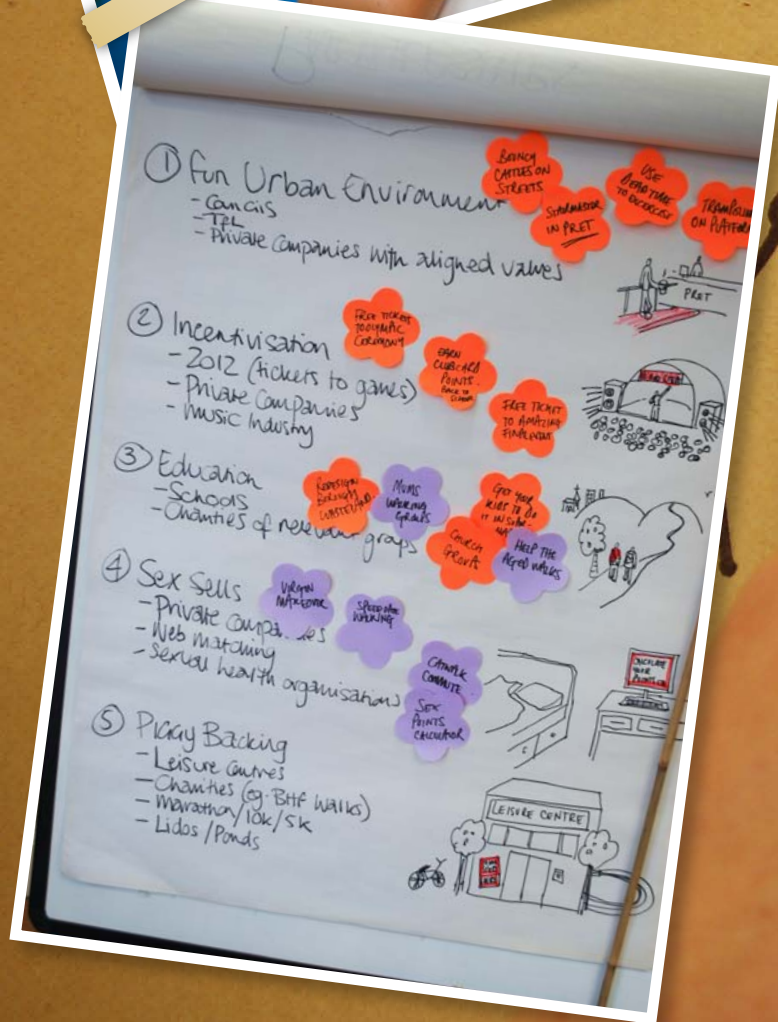 ① Fun Urban Environment
- Councils
- TFL
- Private Companies with aligned values
BOUNCY
CASTLES ON
STREETS
STAIRMASTER
IN PRET
USE
DEAD TIME
TO EXERCISE
TRAMPOLINE
ON PLATFORM
PRET
② Incentivisation
- 2012 (tickets to games)
- Private Companies
- Music Industry
FREE TICKETS
TO OLYMPIC
CEREMONY
EARN
CLUBCARD
POINTS -
BACK TO
SCHOOL
FREE TICKET
TO AMAZING
③ Education
- Schools
- Charities of relevant groups
REDESIGN
BOROUGH
WASTELAND
MUMS
WALKING
GROUPS
GET YOUR
KIDS TO DO
IT IN
CHURCH
GROUP
HELP THE
AGED WALKS
④ Sex Sells
- Private Companies
- Web Matching
- Sexual health organisations
VIRGIN
MAKEOVER
SPEED DATE
WALKING
CATWALK
COMMUTE
SEX
POINTS
CALCULATOR
CALCULATE
YOUR
⑤ Piggy Backing
- Leisure Centres
- Charities (eg. BHF Walks)
- Marathon/10k/5k
- Lidos/Ponds
LEISURE CENTRE